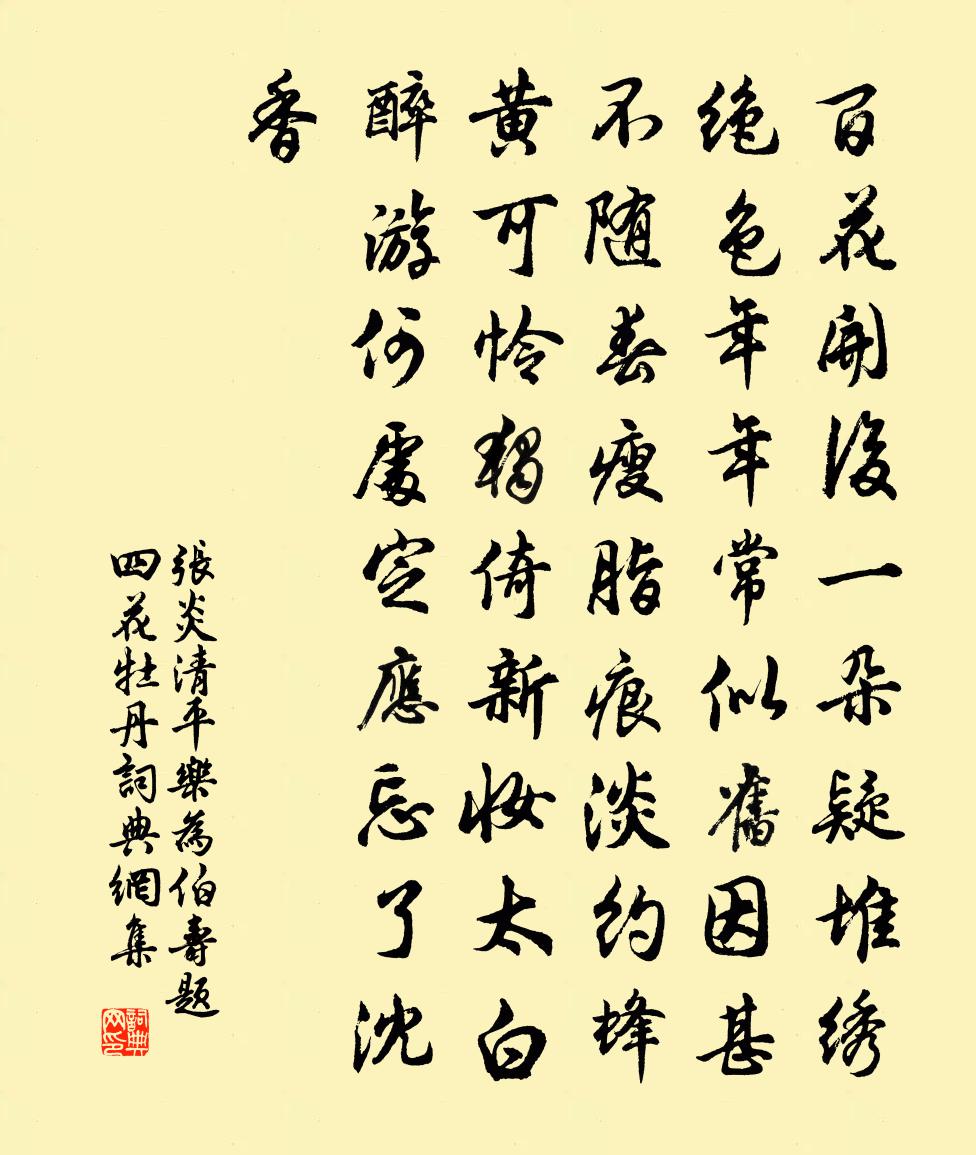 百花開後一朵疑堆绣
绝色年年常似舊因甚
不随春瘦脂痕淡约蜂
黄可怜独倚新妆太白
醉游何處定應忘了沈
香
張炎清平樂為伯壽題
四花牡丹詞典網集
詞典网印